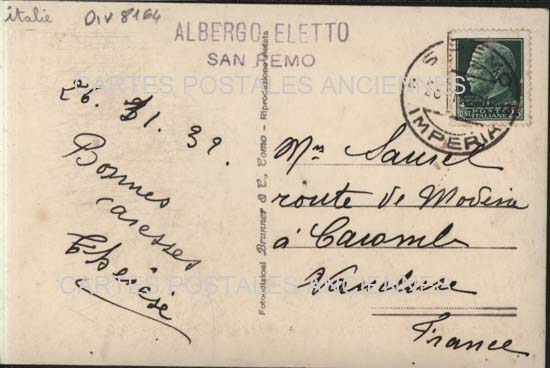 italie
OIV 8164
ALBERGO ELETTO
SAN REMO
CARTES POSTALES ANCIENNES
26. 1. 39.
Bonnes
caresses
Fotoedizioni Brunner & C., Como - Riproduzione vietata
IMPERIA
POSTE ITALIANE
Mr Sausel
route de Modène
à Caromb
Vaucluse
France
CARTES POSTALES ANCIENNES